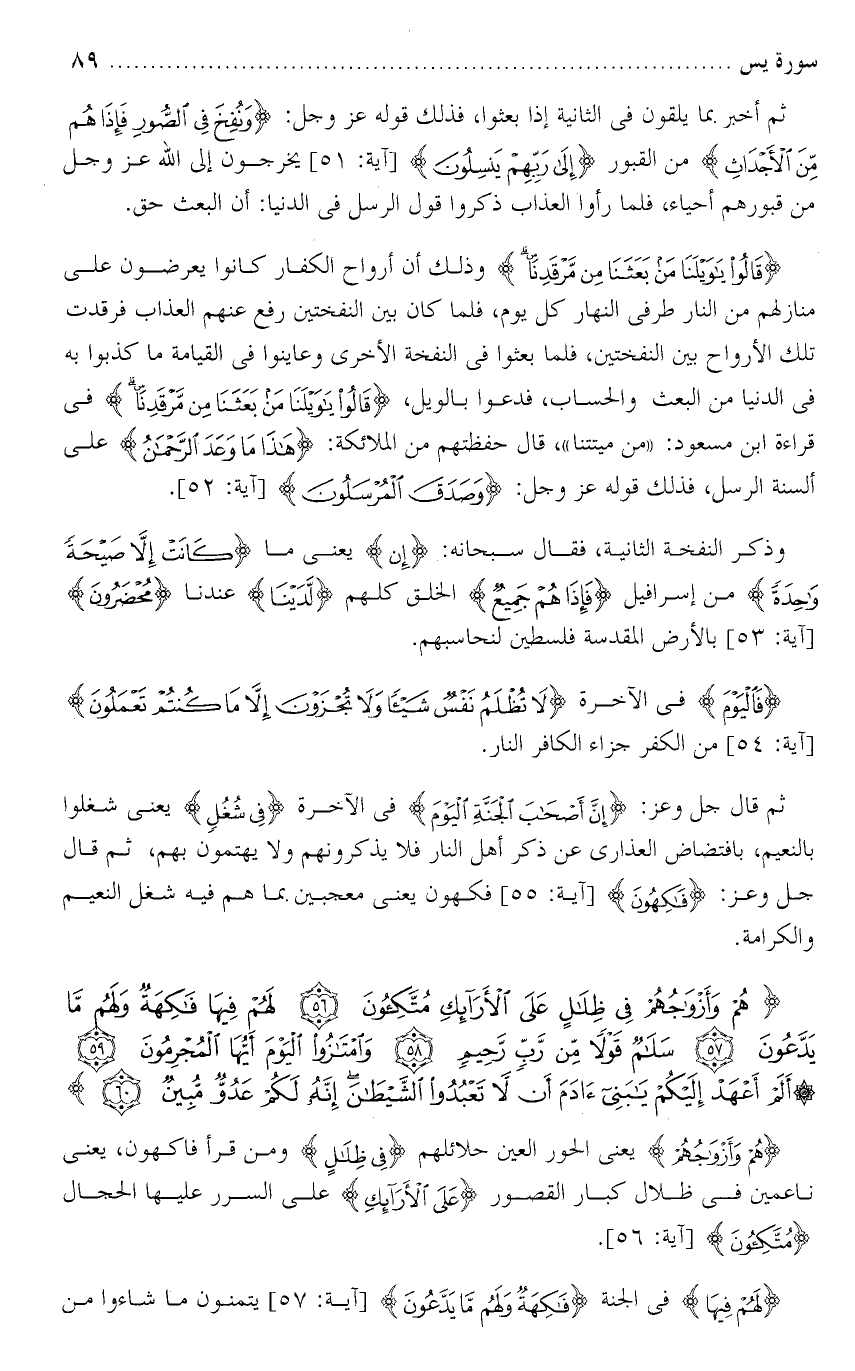 سورة يس ........................................................................ ٨٩
ثم أخبر بما يلقون فى الثانية إذا بعثوا، فذلك قوله عز وجل: ﴿وَنُفِخَ فِى ٱلصُّورِ فَإِذَا هُم
مِّنَ ٱلْأَجْدَاثِ﴾ من القبور ﴿إِلَىٰ رَبِّهِمْ يَنسِلُونَ﴾ [آية: ٥١] يخرجون إلى الله عز وجل
من قبورهم أحياء، فلما رأوا العذاب ذكروا قول الرسل فى الدنيا: أن البعث حق.
﴿قَالُوا۟ يَٰوَيْلَنَا مَنۢ بَعَثَنَا مِن مَّرْقَدِنَا ۜ﴾ وذلك أن أرواح الكفار كانوا يعرضون على
منازلهم من النار طرفى النهار كل يوم، فلما كان بين النفختين رفع عنهم العذاب فرقدت
تلك الأرواح بين النفختين، فلما بعثوا فى النفخة الأخرى وعاينوا فى القيامة ما كذبوا به
فى الدنيا من البعث والحساب، فدعوا بالويل، ﴿قَالُوا۟ يَٰوَيْلَنَا مَنۢ بَعَثَنَا مِن مَّرْقَدِنَا ۜ﴾ فى
قراءة ابن مسعود: «من ميتتنا»، قال حفظتهم من الملائكة: ﴿هَٰذَا مَا وَعَدَ ٱلرَّحْمَٰنُ﴾ على
ألسنة الرسل، فذلك قوله عز وجل: ﴿وَصَدَقَ ٱلْمُرْسَلُونَ﴾ [آية: ٥٢].
وذكر النفخة الثانية، فقال سبحانه: ﴿إِن﴾ يعنى ما ﴿كَانَتْ إِلَّا صَيْحَةً
وَٰحِدَةً﴾ من إسرافيل ﴿فَإِذَا هُمْ جَمِيعٌ﴾ الخلق كلهم ﴿لَّدَيْنَا﴾ عندنا ﴿مُحْضَرُونَ﴾
[آية: ٥٣] بالأرض المقدسة فلسطين لنحاسبهم.
﴿فَٱلْيَوْمَ﴾ فى الآخرة ﴿لَا تُظْلَمُ نَفْسٌ شَيْـًٔا وَلَا تُجْزَوْنَ إِلَّا مَا كُنتُمْ تَعْمَلُونَ﴾
[آية: ٥٤] من الكفر جزاء الكافر النار.
ثم قال جل وعز: ﴿إِنَّ أَصْحَٰبَ ٱلْجَنَّةِ ٱلْيَوْمَ﴾ فى الآخرة ﴿فِى شُغُلٍ﴾ يعنى شغلوا
بالنعيم، بافتضاض العذارى عن ذكر أهل النار فلا يذكرونهم ولا يهتمون بهم، ثم قال
جل وعز: ﴿فَٰكِهُونَ﴾ [آية: ٥٥] فكهون يعنى معجبين بما هم فيه شغل النعيم
والكرامة.
﴿ هُمْ وَأَزْوَٰجُهُمْ فِى ظِلَٰلٍ عَلَى ٱلْأَرَآئِكِ مُتَّكِـُٔونَ ٥٦ لَهُمْ فِيهَا فَٰكِهَةٌ وَلَهُم مَّا
يَدَّعُونَ ٥٧ سَلَٰمٌ قَوْلًا مِّن رَّبٍّ رَّحِيمٍ ٥٨ وَٱمْتَٰزُوا۟ ٱلْيَوْمَ أَيُّهَا ٱلْمُجْرِمُونَ ٥٩
۞ أَلَمْ أَعْهَدْ إِلَيْكُمْ يَٰبَنِىٓ ءَادَمَ أَن لَّا تَعْبُدُوا۟ ٱلشَّيْطَٰنَ ۖ إِنَّهُۥ لَكُمْ عَدُوٌّ مُّبِينٌ ٦٠ ﴾
﴿هُمْ وَأَزْوَٰجُهُمْ﴾ يعنى الحور العين حلائلهم ﴿فِى ظِلَٰلٍ﴾ ومن قرأ فاكهون، يعنى
ناعمين فى ظلال كبار القصور ﴿عَلَى ٱلْأَرَآئِكِ﴾ على السرر عليها الحجال
﴿مُتَّكِـُٔونَ﴾ [آية: ٥٦].
﴿لَهُمْ فِيهَا﴾ فى الجنة ﴿فَٰكِهَةٌ وَلَهُم مَّا يَدَّعُونَ﴾ [آية: ٥٧] يتمنون ما شاءوا من